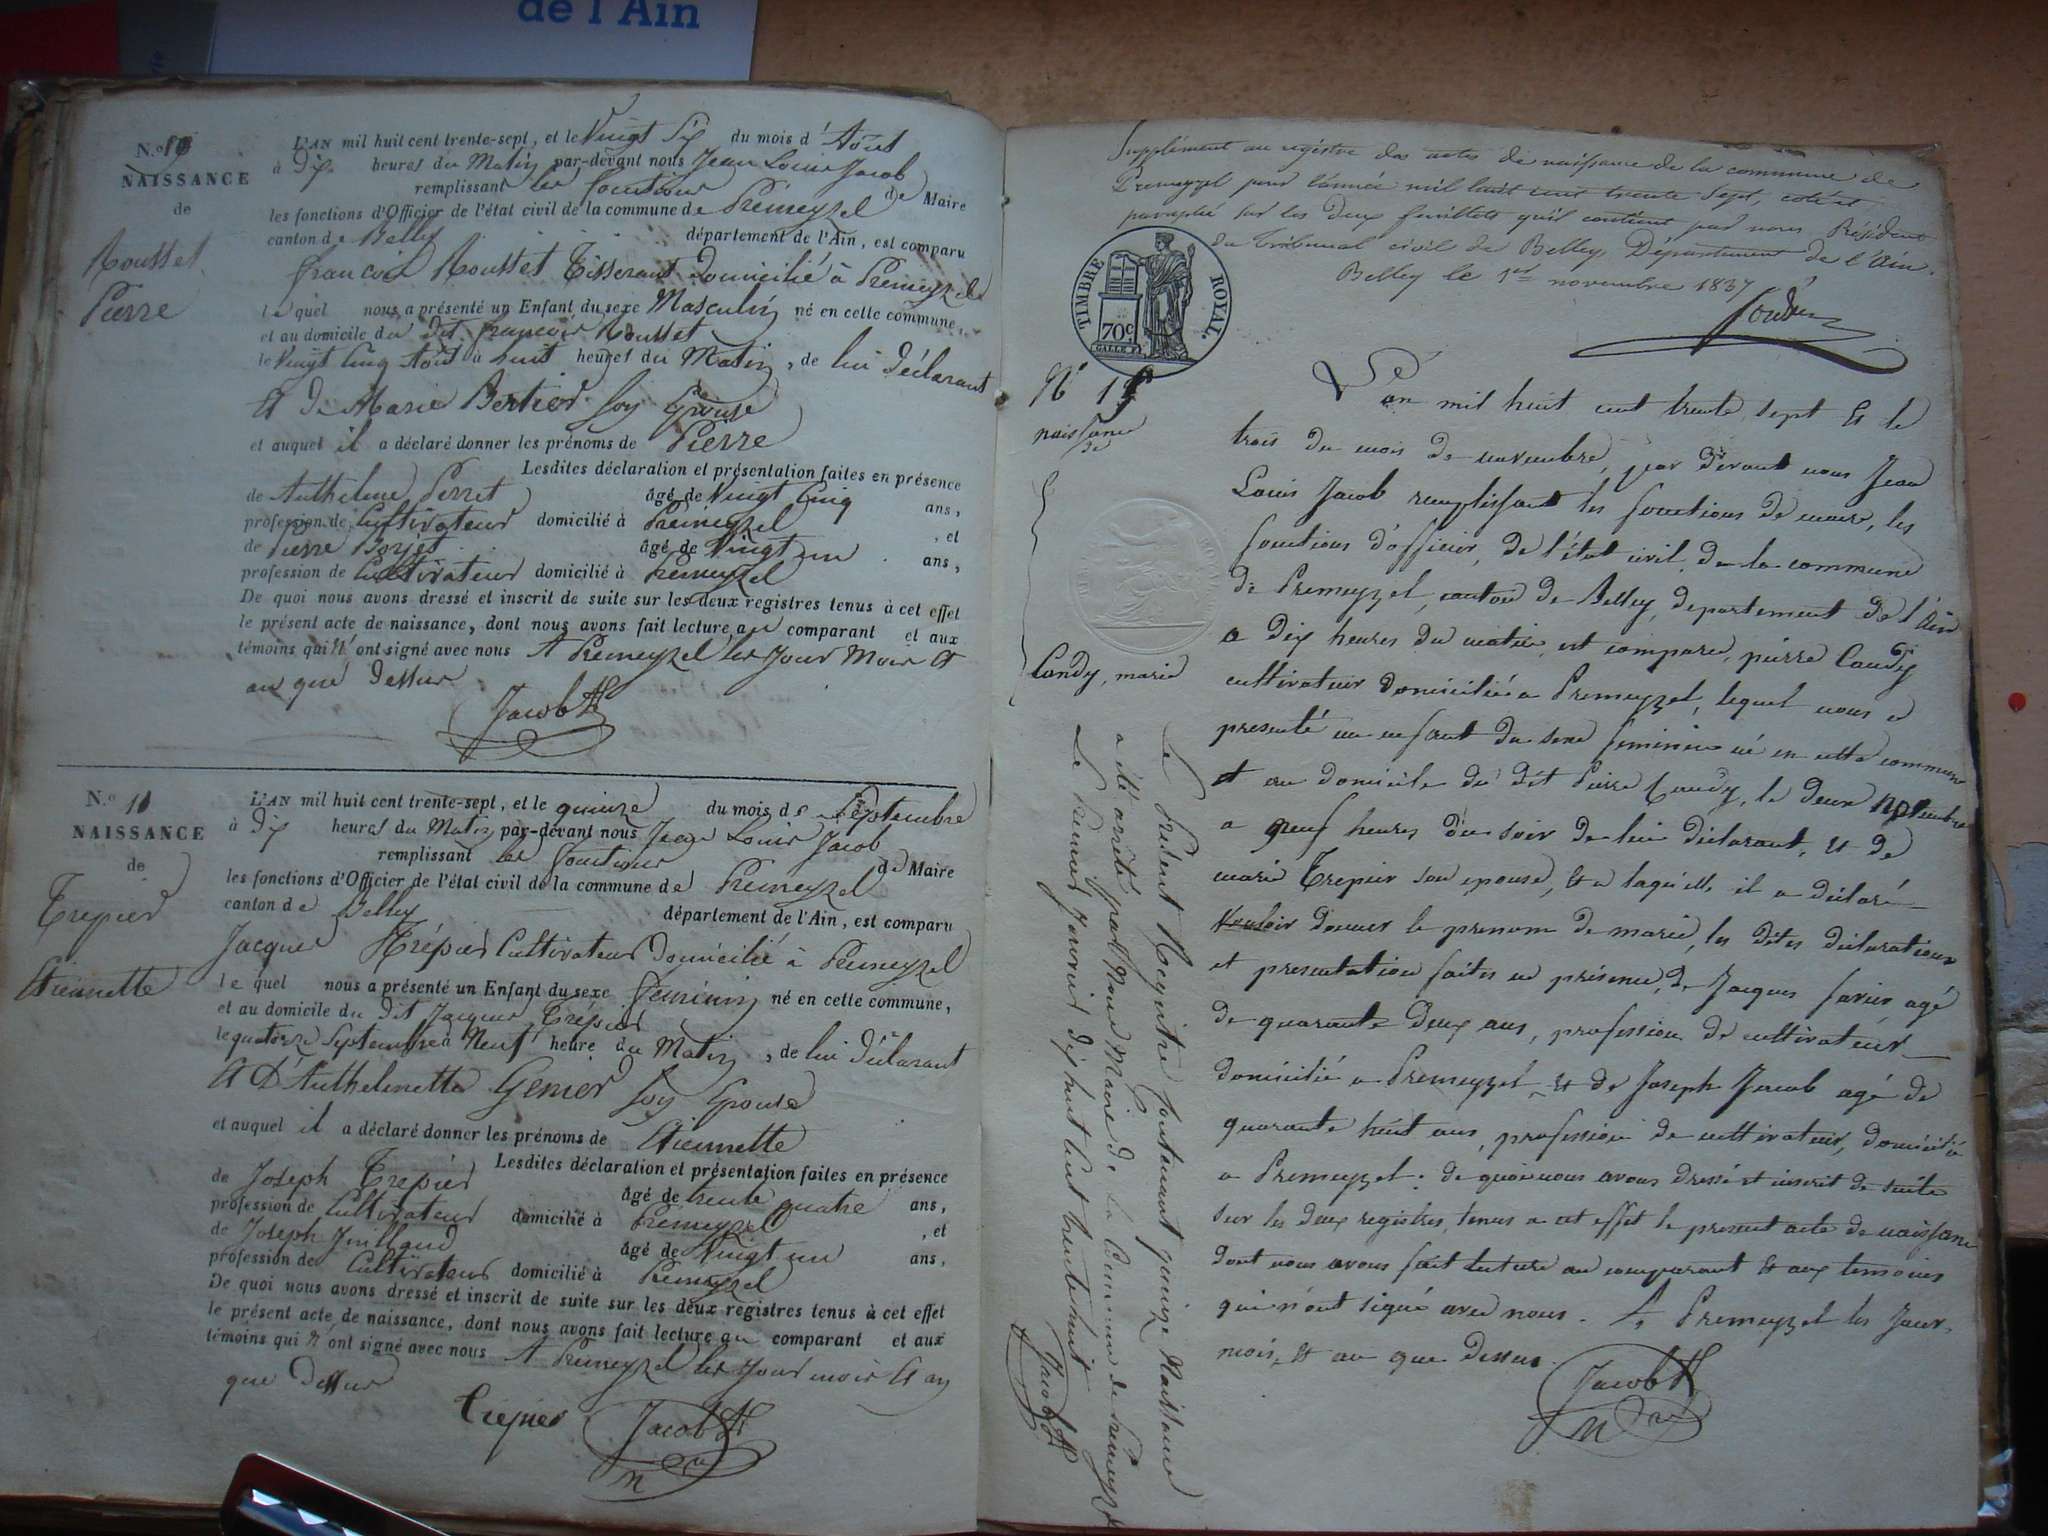 de l'Ain
N.º 10
NAISSANCE
de
Mousset
Pierre
L'AN mil huit cent trente-sept, et le Vingt Six du mois d'Août
à Dix heures du Matin par-devant nous Jean Louis Jacob
remplissant les fonctions de Maire
les fonctions d'Officier de l'état civil de la commune de Prémeyzel
canton de Belley département de l'Ain, est comparu
francois Mousset Tisserant Domicilié à Prémeyzel
lequel nous a présenté un Enfant du sexe Masculin né en cette commune,
et au domicile du dit francois Mousset
le Vingt Cinq Août à huit heures du Matin, de lui Déclarant
Et De Marie Bertier son Epouse
et auquel il a déclaré donner les prénoms de Pierre
Lesdites déclaration et présentation faites en présence
de Anthelme Perret âgé de Vingt Cinq ans,
profession de Cultivateur domicilié à Prémeyzel, et
de Pierre âgé de Vingt un ans,
profession de Cultivateur domicilié à Premeyzel
De quoi nous avons dressé et inscrit de suite sur les deux registres tenus à cet effet
le présent acte de naissance, dont nous avons fait lecture au comparant et aux
témoins qui n'ont signé avec nous A Premeyzel les Jour Mois Et
an que Dessus
Jacob
N.º 11
NAISSANCE
de
Trepier
Etiennette
L'AN mil huit cent trente-sept, et le quinze du mois de Septembre
à Dix heures du Matin par-devant nous Jean Louis Jacob
remplissant les fonctions de Maire
les fonctions d'Officier de l'état civil de la commune de Premeyzel
canton de Belley département de l'Ain, est comparu
Jacques Trépier Cultivateur Domicilié à Premeyzel
lequel nous a présenté un Enfant du sexe Feminin né en cette commune,
et au domicile du dit Jacques Trépier
le quatorze Septembre à Neuf heure du Matin, de lui Déclarant
Et D'Anthelmette Genier son Epouse
et auquel il a déclaré donner les prénoms de Etiennette
Lesdites déclaration et présentation faites en présence
de Joseph Trepier âgé de trente quatre ans,
profession de Cultivateur domicilié à Prémeyzel, et
de Joseph Juilland âgé de Vingt un ans,
profession de Cultivateur domicilié à Premeyzel
De quoi nous avons dressé et inscrit de suite sur les deux registres tenus à cet effet
le présent acte de naissance, dont nous avons fait lecture au comparant et aux
témoins qui n'ont signé avec nous A Premeyzel les Jour mois Et an
que Dessus
Trepier Jacob
Supplément au régistre des actes de naissance de la commune de
Premeyzel pour l'année mil huit cent trente Sept, coté et
paraphé sur les deux feuillets qu'il contient par nous Président
du Tribunal civil de Belley, Département de l'Ain.
Belley le 1er novembre 1837
TIMBRE ROYAL.
70c
GALLE F.
Nº 12
naissance
de
Candy, marie
L'an mil huit cent trente sept Et le
trois du mois de novembre, par devant nous Jean
Louis Jacob remplissant les fonctions de maire, les
fonctions d'officier, de l'état civil, de la commune
de Premeyzel, canton de Belley, departement de l'Ain
a dix heures du matin, est comparu, pierre Candy
cultivateur domicilié a Premeyzel, lequel nous a
presenté un enfant du sexe feminin né en cette commune
et au domicile du dit Pierre Candy, le deux Novembre
a neuf heures du soir de lui déclarant, et de
marie Trepier son epouse, et a laquelle il a déclaré
vouloir donner le prenom de marie, les dites déclaration
et presentation faites en présence, de Jacques Savier, agé
de quarante deux ans, profession de cultivateur
domicilié a Premeyzel, et de Joseph Jacob agé de
quarante huit ans, profession de cultivateur, domicilié
a Premeyzel: de quoi nous avons dressé et inscrit de suite
sur les deux registres, tenus a cet effet le present acte de naissance
dont nous avons fait lecture au comparant Et aux temoins
qui n'ont signé avec nous. A Premeyzel les Jour,
mois, et an que dessus
Jacob
Le Présent Régistre Contenant quinze Naissance
a été arrêté par Nous Maire de La Commune de Prémeyzel
Le Premier Janvier dix huit Cent trente huit
Jacob